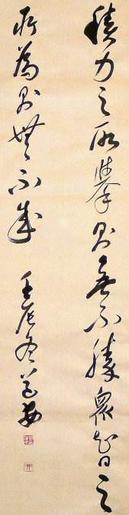 積力之所舉則無不勝衆智之
所為則無不成
壬辰冬